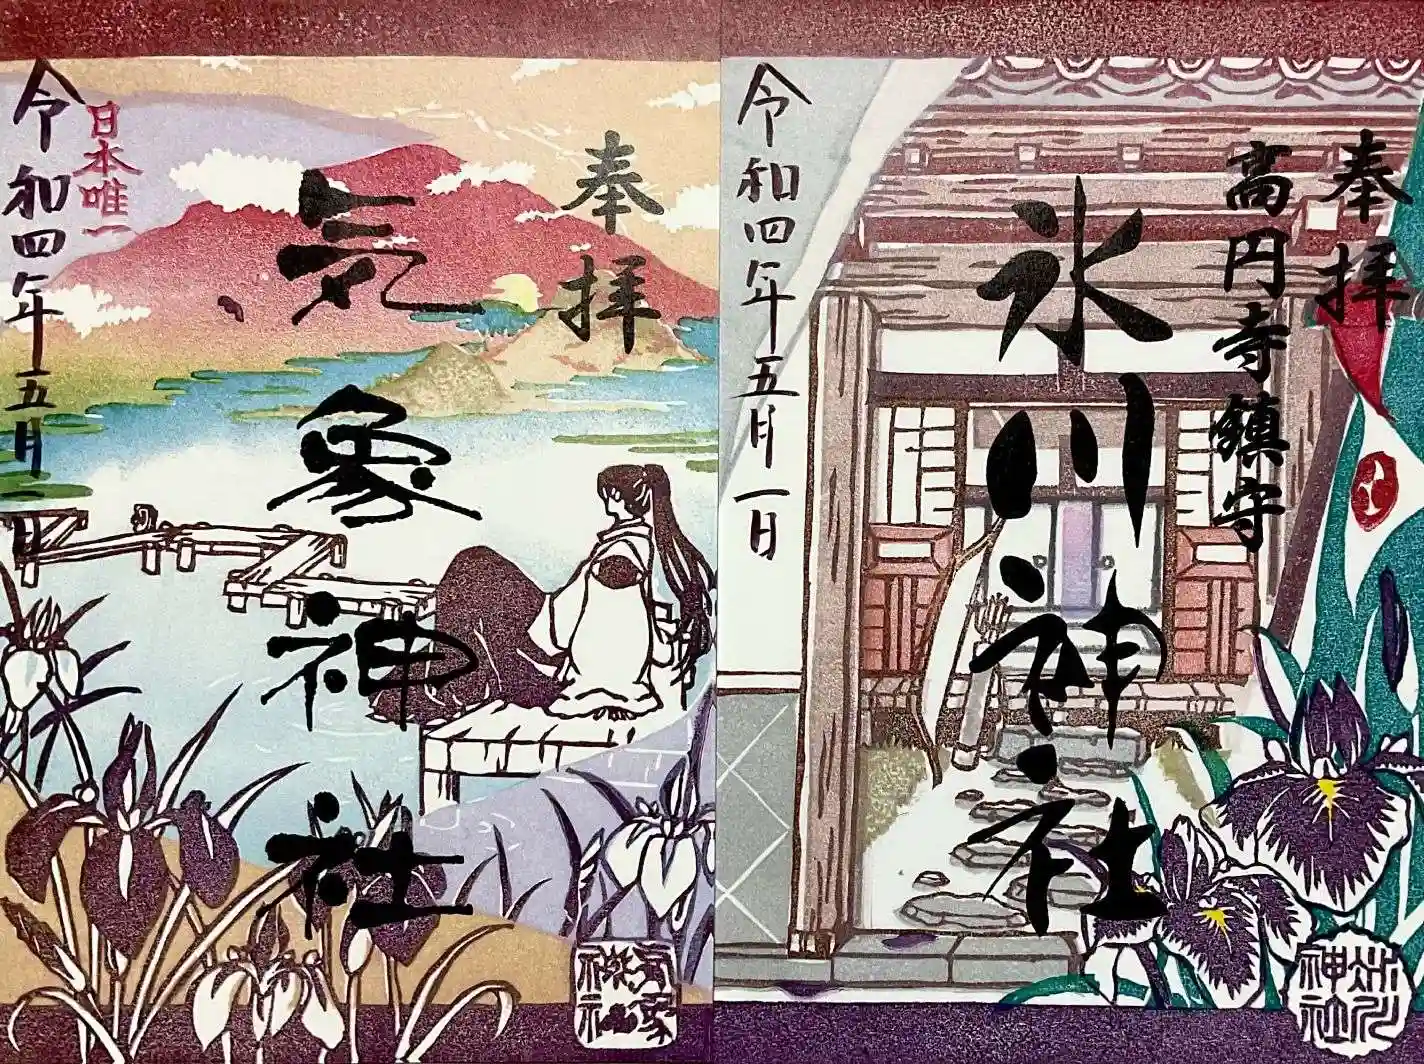 奉拝
高円寺鎮守
氷川神社
令和四年五月一日
氷川神社
奉拝
気象神社
日本唯一
令和四年五月一日
気象神社